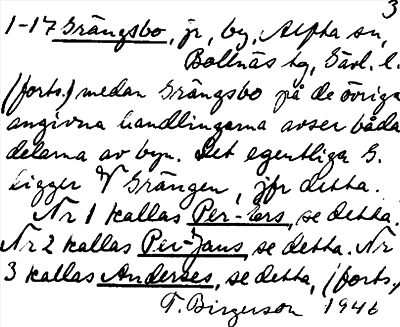 3
1-17 Grängsbo, jr, by, Alfta sn,
Bollnäs tg, Gävl. l.
(forts.) medan Grängsbo på de övriga
angivna handlingarna avser båda
delarna av byn. Det egentliga G.
ligger V Grängen, jfr detta.
Nr 1 kallas Per-Ers, se detta.
Nr 2 kallas Per-Jans, se detta. Nr
3 kallas Anderses, se detta, (forts.)
T. Birgerson 1946